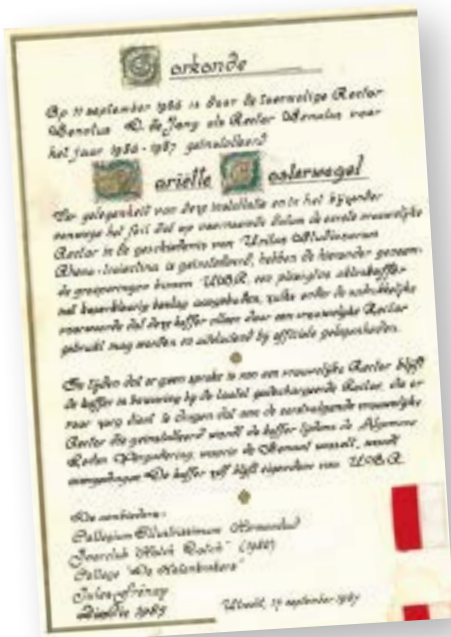 Oorkonde
Op 11 september 1986 is door de toenmalige Rector
Senatus D. de Jong als Rector Senatus voor
het jaar 1986-1987 geïnstalleerd
Mariëlle Oosterwegel
Ter gelegenheid van deze installatie en in het bijzonder
vanwege het feit dat op voornoemde datum de eerste vrouwelijke
Rector in de geschiedenis van Unitas Studiosorum
Rheno-Traiectina is geïnstalleerd, hebben de hieronder genoem-
de groeperingen binnen U.S.R. een plexiglas aktekoffer
met beslag aangeboden, zulks onder de uitdrukkelijke
voorwaarde dat deze koffer alleen door een vrouwelijke Rector
gebruikt mag worden en uitsluitend bij officiele gelegenheden.
In tijden dat er geen sprake is van een vrouwelijke Rector blijft
de koffer in bewaring bij de laatst gedechargeerde Rector, die er
voor zorg dient te dragen dat aan de eerstvolgende vrouwelijke
Rector die geïnstalleerd wordt de koffer tijdens de Algemene
Leden Vergadering, waarin de Senaat wisselt, wordt
overgedragen. De koffer zelf blijft eigendom van U.S.R.
De aanbieders:
Collegium Illustrissimum Hermandad
Jaarclub "Hotch Potch" (1982)
College "De Notenkrakers"
Jules
1985
Utrecht, 17 september 1987